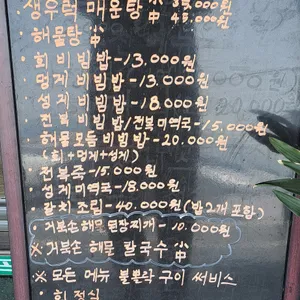 생우럭 매운탕 小 35,000원
中 45,000원
· 해물탕 中
· 회비빔밥 - 13.000원
· 멍게비빔밥 - 13.000원
· 성게비빔밥 - 18.000원
· 전복비빔밥/전복미역국 - 15.000원
· 해물모듬비빔밥 - 20.000원
(회+멍게+성게)
· 전복죽 - 15.000원
· 성게미역국 - 18.000원
· 갈치조림 - 40.000원 (밥2개포함)
· 거북손해물된장찌개 - 10.000원
※ 거북손 해물 칼국수 中
※ 모든 메뉴 불볼락 구이 써비스
· 회정식